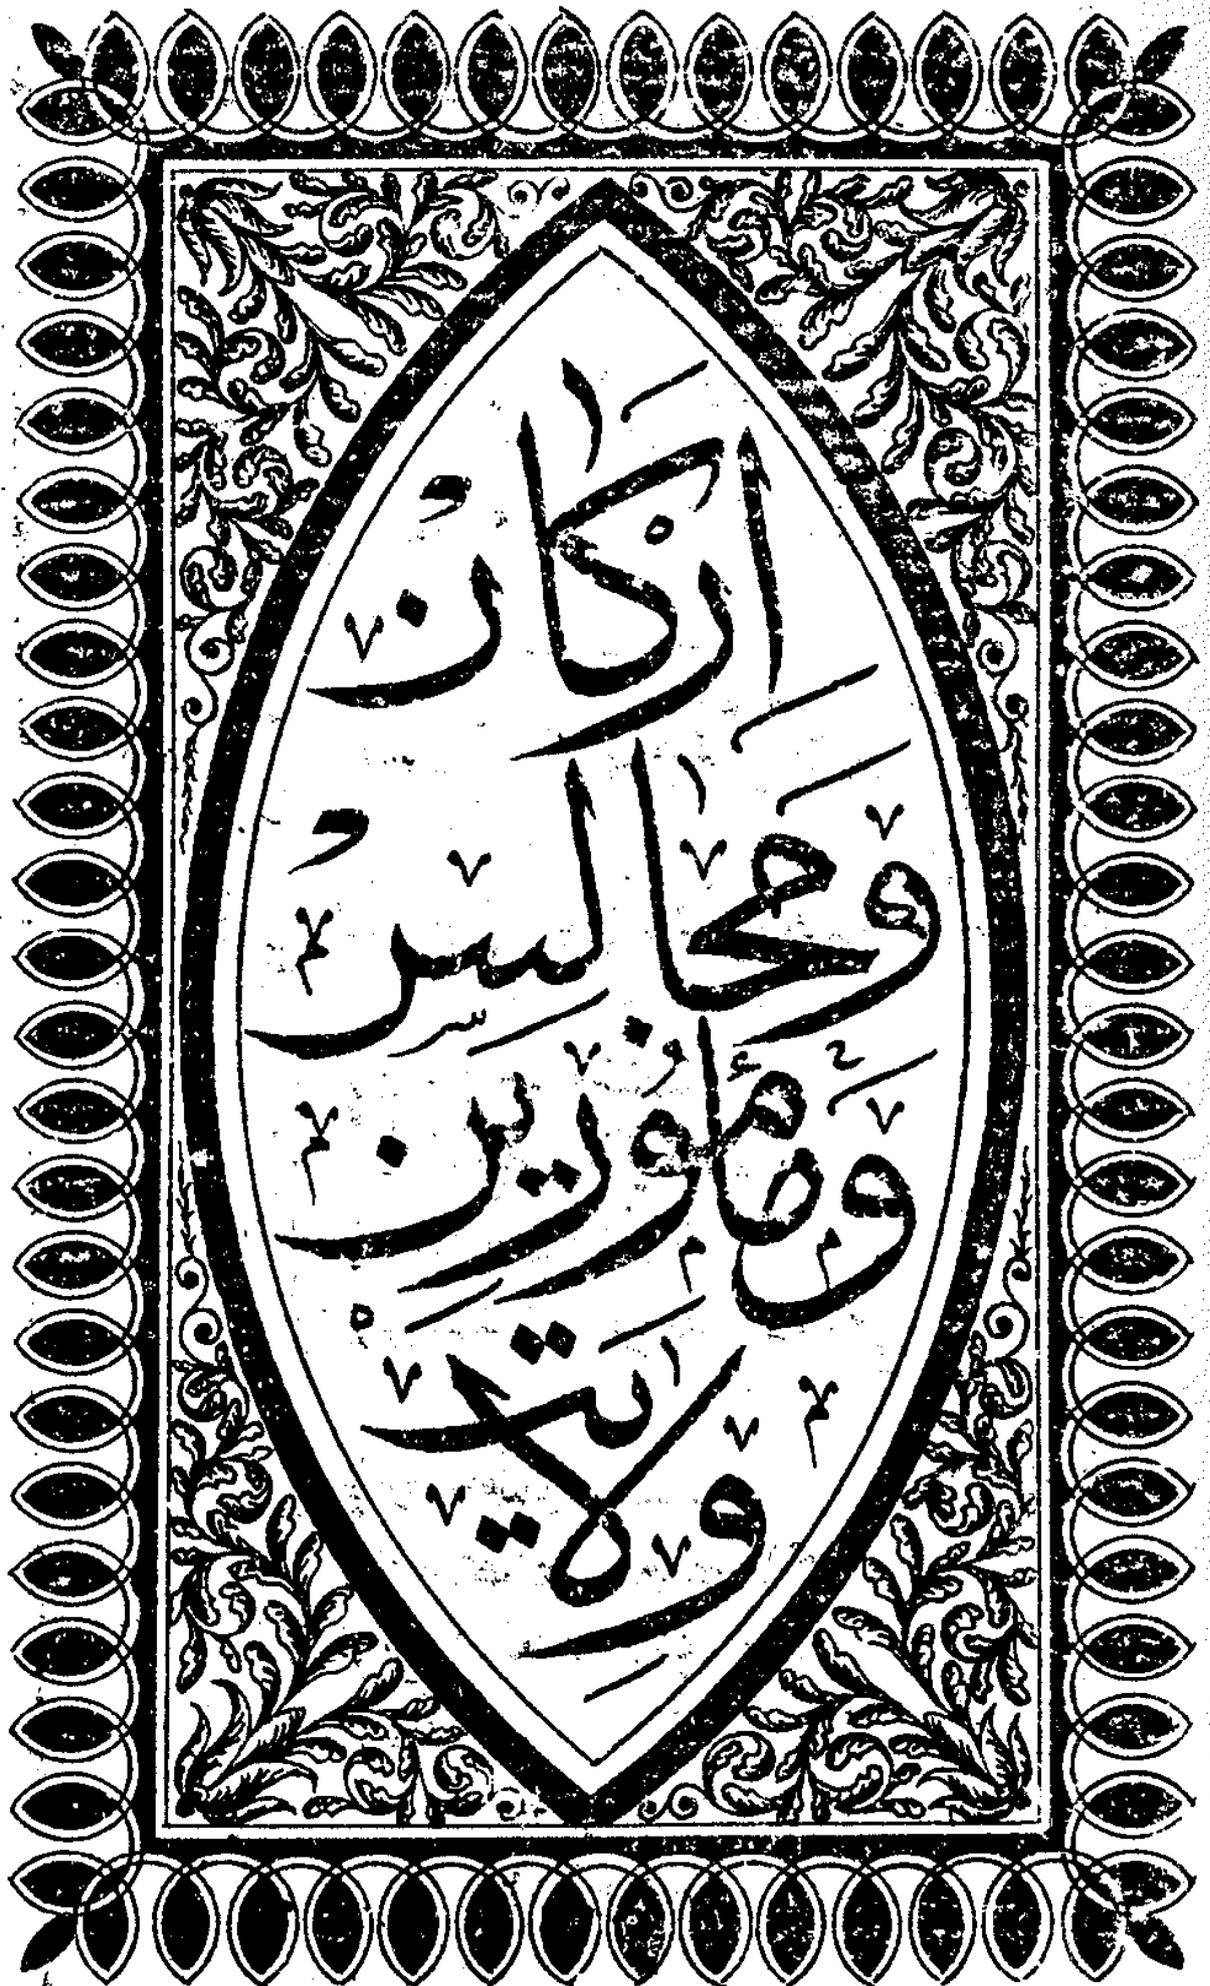 اركان
ومجالس
ومأمورين
ولايت